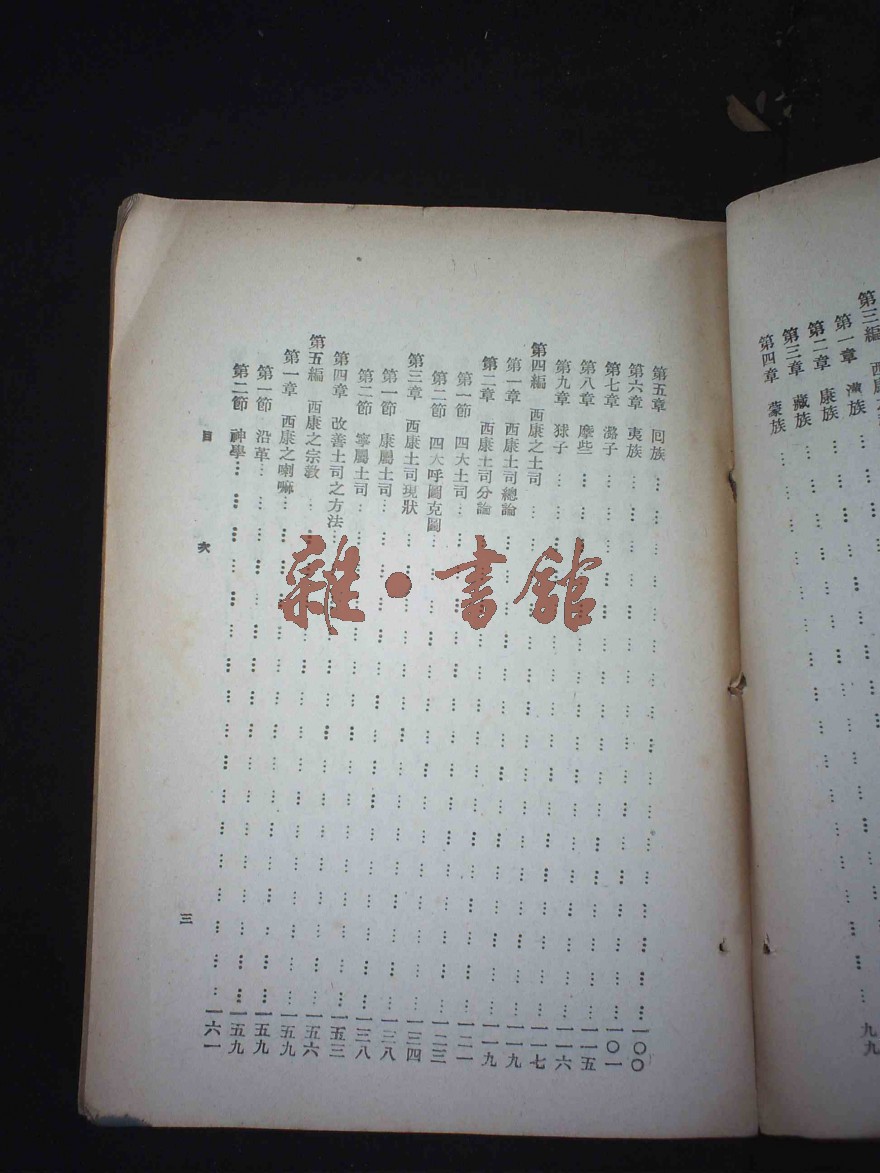 第三編 西康之
第一章 漢族
第二章 康族
第三章 藏族
第四章 蒙族 九九
第五章 回族 … … … 一〇〇
第六章 夷族 … … … 一〇一
第七章 潞子 … … … 一一五
第八章 麽些 … … … 一一六
第九章 子 … … … 一一七
第四編 西康之土司 … … … 一一九
第一章 西康土司總論 … … … 一一九
第二章 西康土司分論 … … … 一二一
第一節 四大土司 … … … 一二三
第二節 四大呼圖克圖 … … … 一三四
第三章 西康土司現狀 … … … 一三八
第一節 康屬土司 … … … 一三八
第二節 寧屬土司 … … … 一五三
第四章 改善土司之方法 … … … 一五六
第五編 西康之宗教 … … … 一五九
第一章 西康之喇嘛 … … … 一五九
第一節 沿革 … … … 一五九
第二節 神學 … … … 一六一
目 次 三
雜·書館